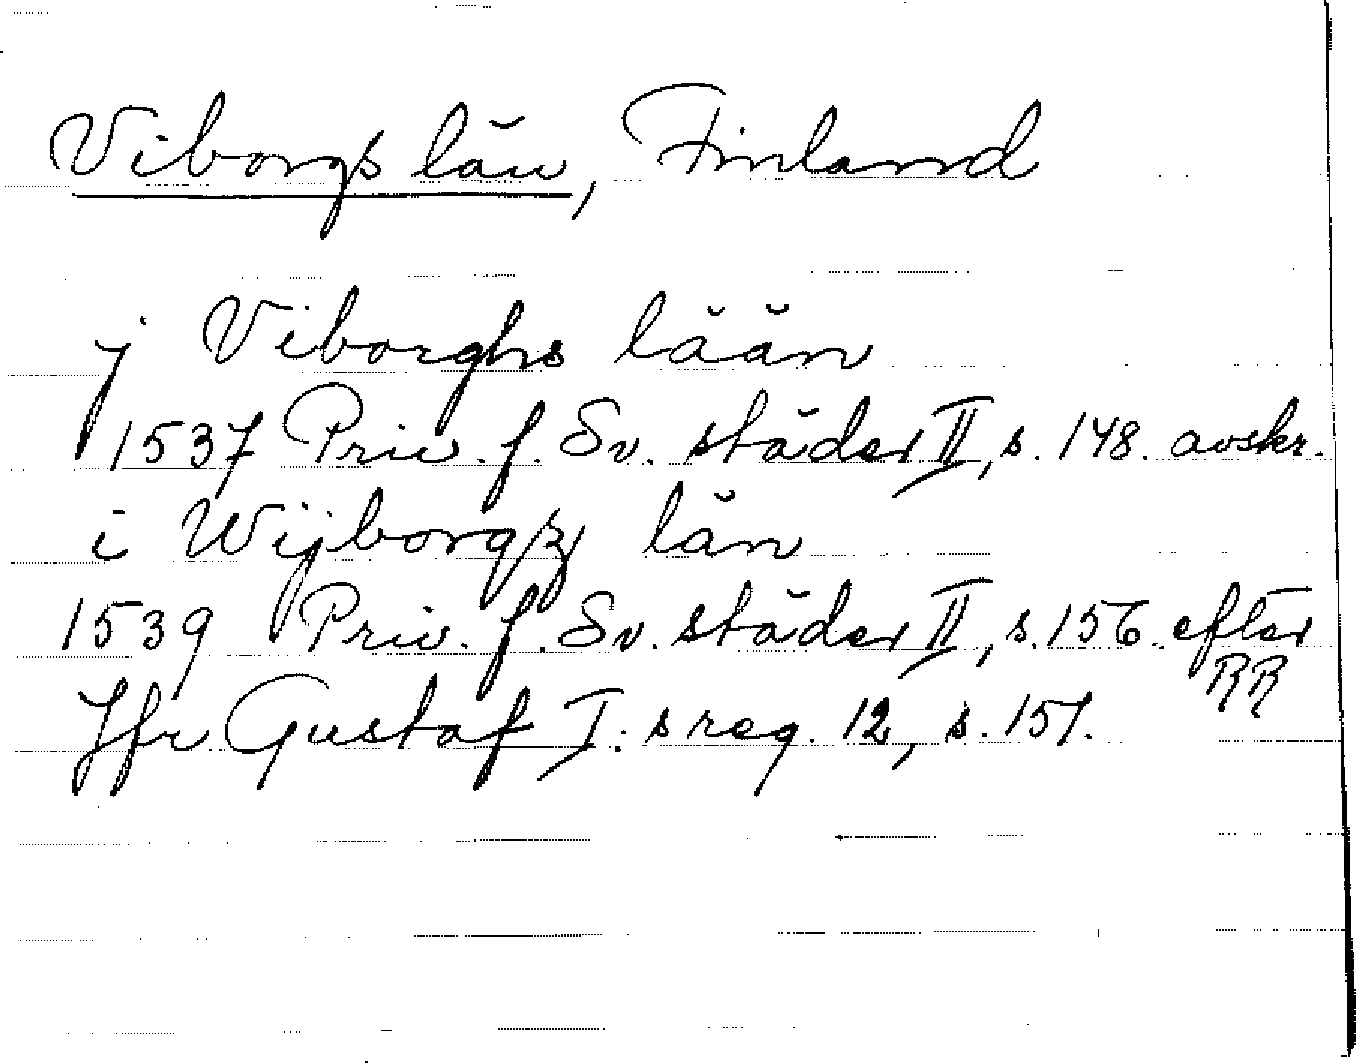 Viborgs län, Finland
j Viborghs lään
1537 Priv. f. Sv. städer II, s. 148. avskr.
i Wijborgz län
1539 Priv. f. Sv. städer II, s. 156. efter RR
Jfr Gustaf I:s reg. 12, s. 157.